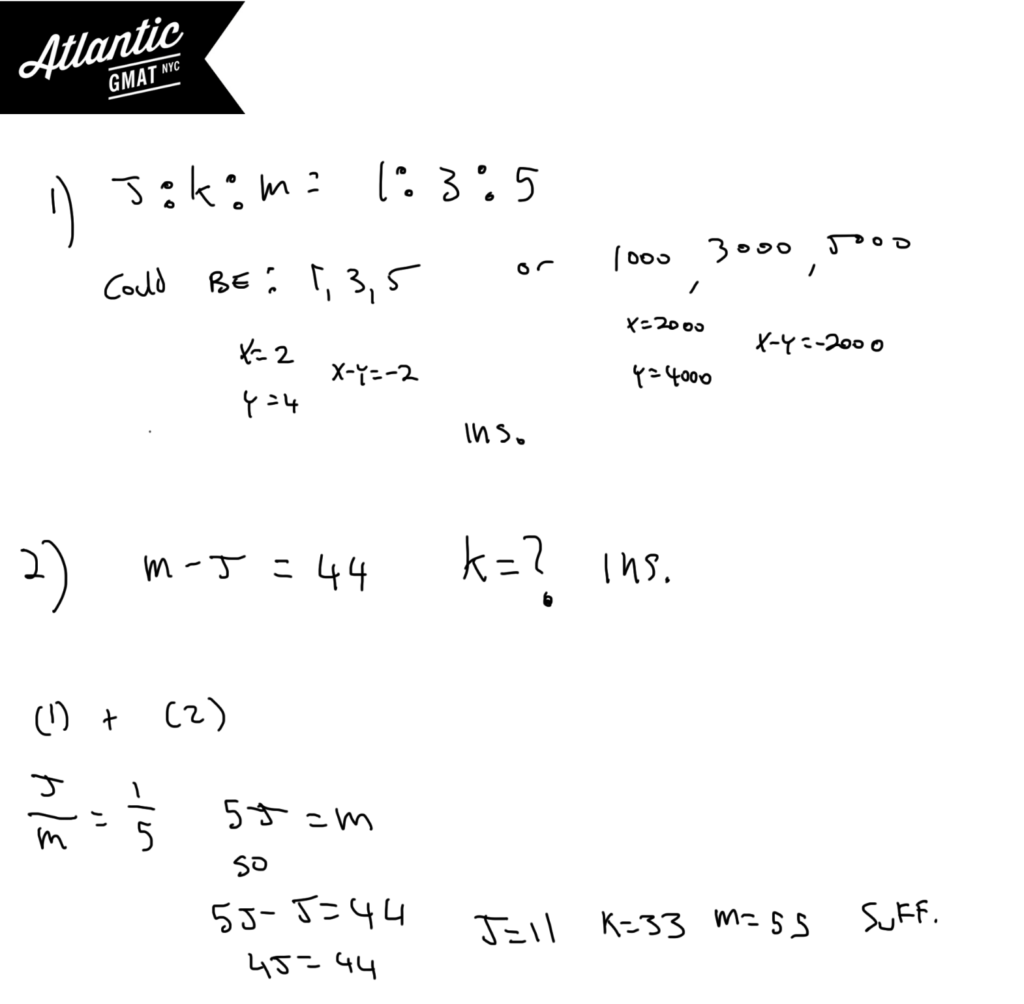 Atlantic
GMAT NYC
1) J:k:m = 1:3:5
Could BE: 1, 3, 5 or 1000, 3000, 5000
x=2 x-y=-2 x=2000 x-y=-2000
y=4 y=4000
ins.
2) m-J = 44 k=? ins.
(1) + (2)
J/m = 1/5 5J = m
so
5J-J=44 J=11 K=33 m=55 SuFF.
4J=44